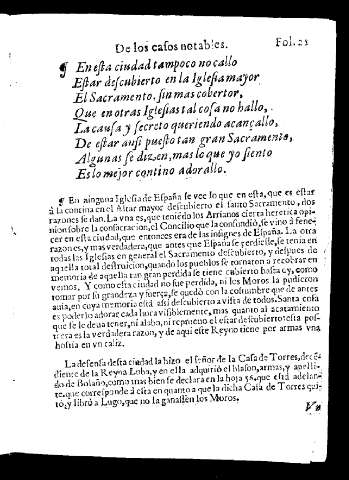 De los casos notables. Fol. 25
¶ En esta ciudad tampoco no callo
Estar descubierto en la Iglesia mayor
El Sacramento, sin mas cobertor,
Que en otras Iglesias tal cosa no hallo,
La causa y secreto queriendo acançallo,
De estar ansi puesto tan gran Sacramento,
Algunas se dizen, mas lo que yo siento
Es lo mejor contino adorallo.
¶ En ninguna Iglesia de España se vee lo que en esta, que es estar
à la contina en el Altar mayor descubierto el santo Sacramento, dos
razones se dan. La vna es, que teniẽdo los Arrianos cierta heretica opi-
nion sobre la consacracion, el Concilio que la consundiò, se vino à fene-
cer en esta ciudad, que entonces era de las insignes de España. La otra
razones, y mas verdadera, que antes que España se perdiesse, se tenia en
todas las Iglesias en general el Sacramento descubierto, y despues de
aquella total destruicion, quando los pueblos se tornaron a recobrar en
memoria de aquella tan gran perdida se tiene cubierto hasta oy, como
vemos, Y como esta ciudad no fue perdida, ni los Moros la pudieron
tomar por su grandeza y fuerça, se quedò con la costumbre que de antes
auia, en cuya memoria està assi descubierto a vista de todos. Santa cosa
es poderlo adorar cada hora visiblemente, mas quanto al acatamiento
que se le deua tener, ni alabo, ni repruevo el estar descubierto: esta pos-
trera es la verdadera razon, y de aqui este Reyno tiene por armas vna
hostia en vn caliz.
La defensa desta ciudad la hizo el señor de la Casa de Torres, decẽ-
diente de la Reyna Loba, y en ella adquiriò el blason, armas, y apelli-
do de Bolaño, como mas bien se declara en la hoja 58. que està adelan-
te, que corresponde à esta en quanto a que la dicha Casa de Torres qui-
tò, y librò a Lugo, que no la ganassen los Moros.
Vn